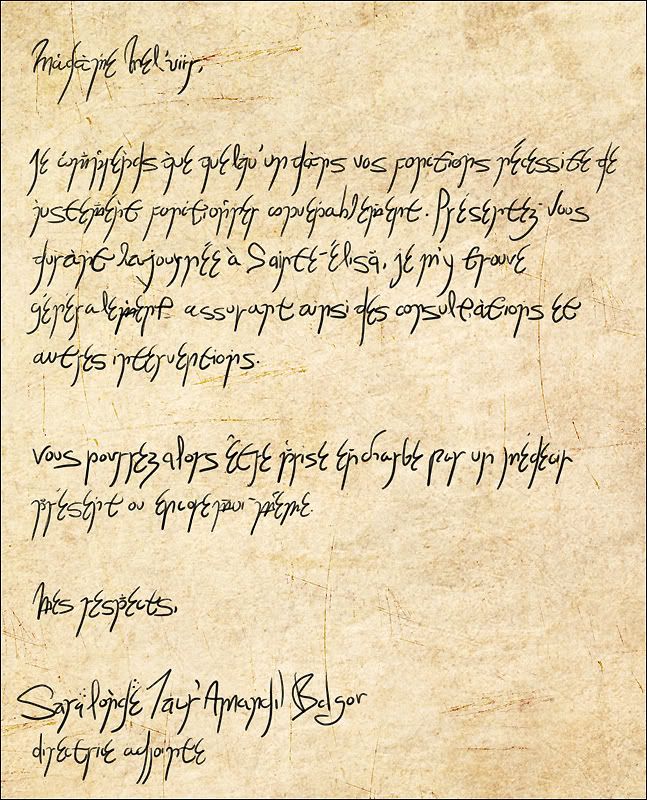 Madame Mel'viir,
Je comprends que quelqu'un dans vos fonctions nécessite de
justement fonctionner convenablement. Présentez-vous
durant la journée à Sainte-Élisa, je m'y trouve
généralement assurant ainsi des consultations et
autres interventions.
Vous pourrez alors être prise en charge par un médecin
présent ou encore par moi-même.
Mes respects,
Amandil
directrice adjointe